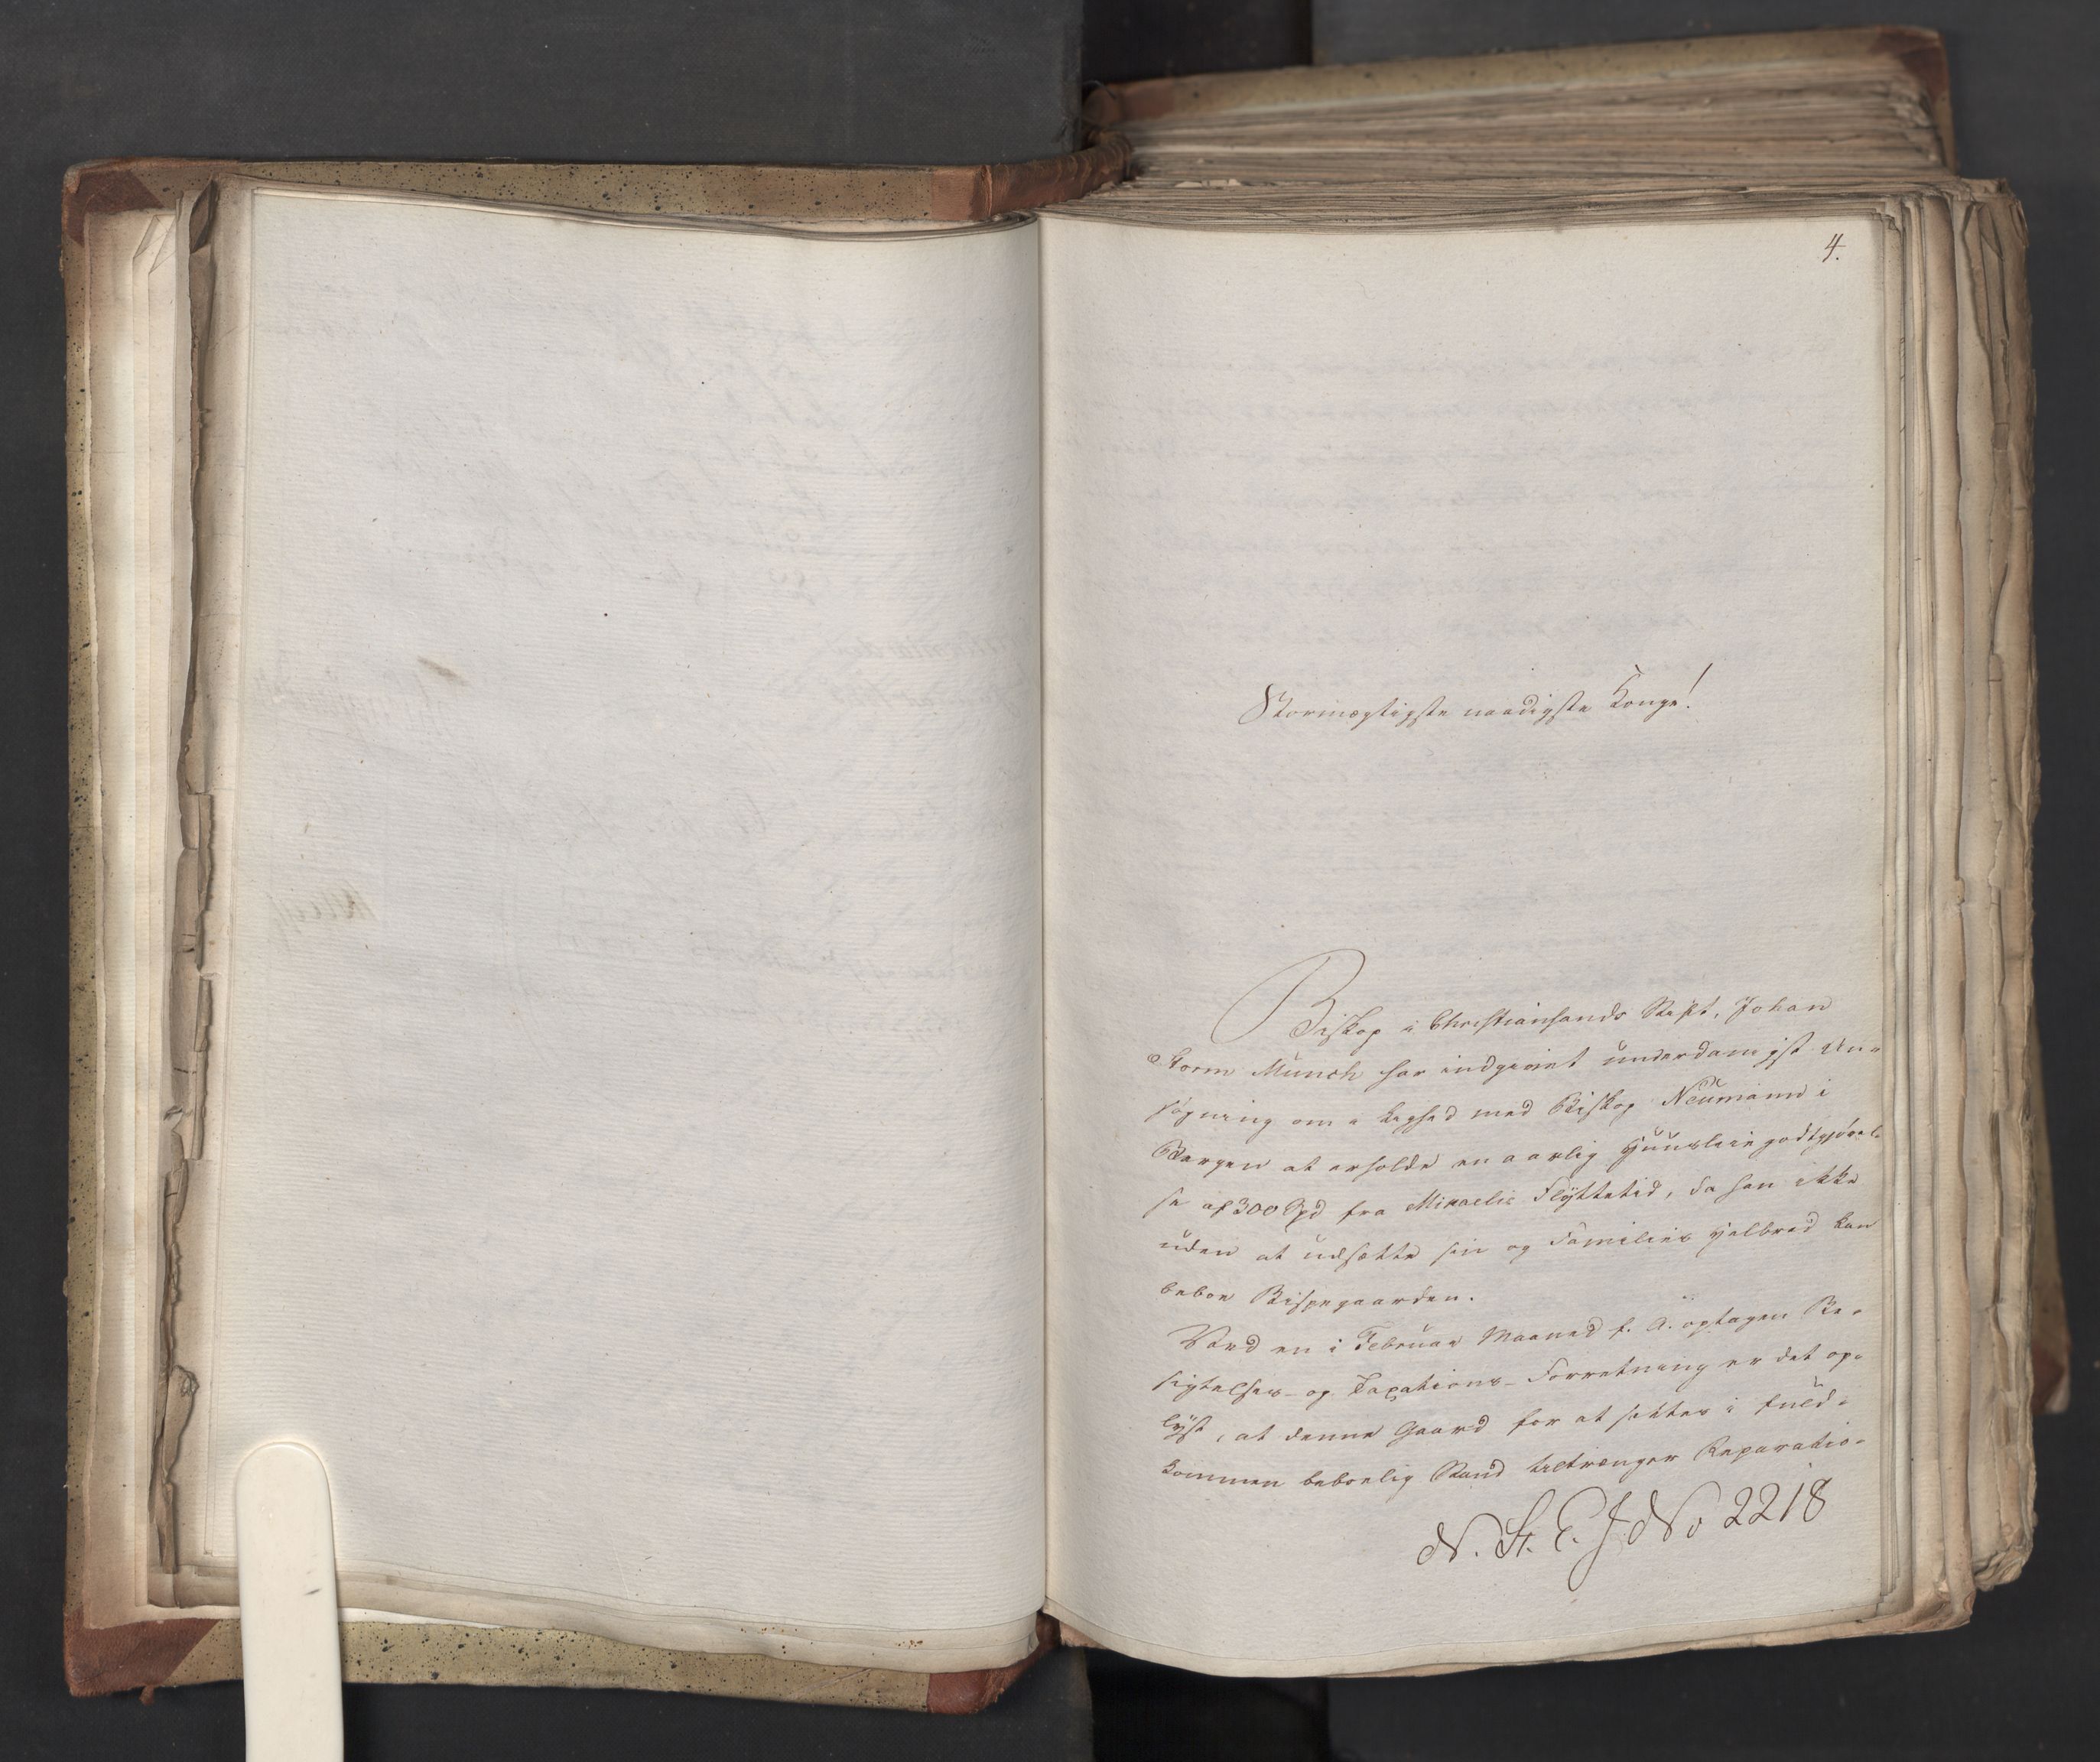 4.
Stormægtigste naadigste Konge!
Biskop i Christiansands Stift, Johan
Storm Munch har indgivet underdanigst An-
søgning om i Lighed med Biskop Neumann i
Bergen at erholde en aarlig Huusleiegodtgjørel-
se af 300 Spd fra Mikaelis Flyttetid, da han ikke
uden at udsætte sin og Families Helbred kan
beboe Bispegaarden.
Ved en i Februar Maaned f. A. optagen Be-
sigtelses- og Taxations-Forretning er det op-
lyst, at denne Gaard for at sættes i fuld-
kommen beboelig Stand tiltrænger Reparatio-
N. St. E. J. No 2218